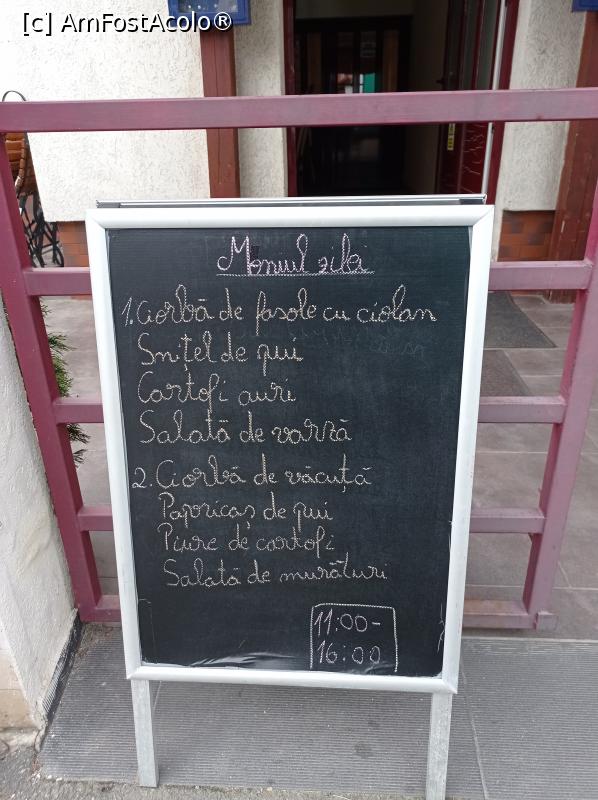 [c] AmFostAcolo®
Meniul zilei
1. Ciorbă de fasole cu ciolan
Snițel de pui
Cartofi auri
Salată de varză
2. Ciorbă de văcuță
Papricaș de pui
Piure de cartofi
Salată de murături
11:00-
16:00